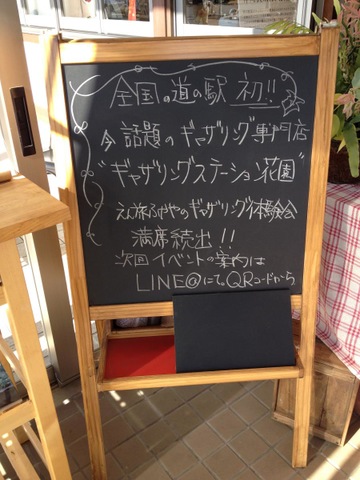 全国の道の駅 初!!
今話題のギャザリング専門店
"ギャザリングステーション花園"
ふやのギャザリング体験会
満席続出!!
次回イベントの案内は
LINE@にて。QRコードから